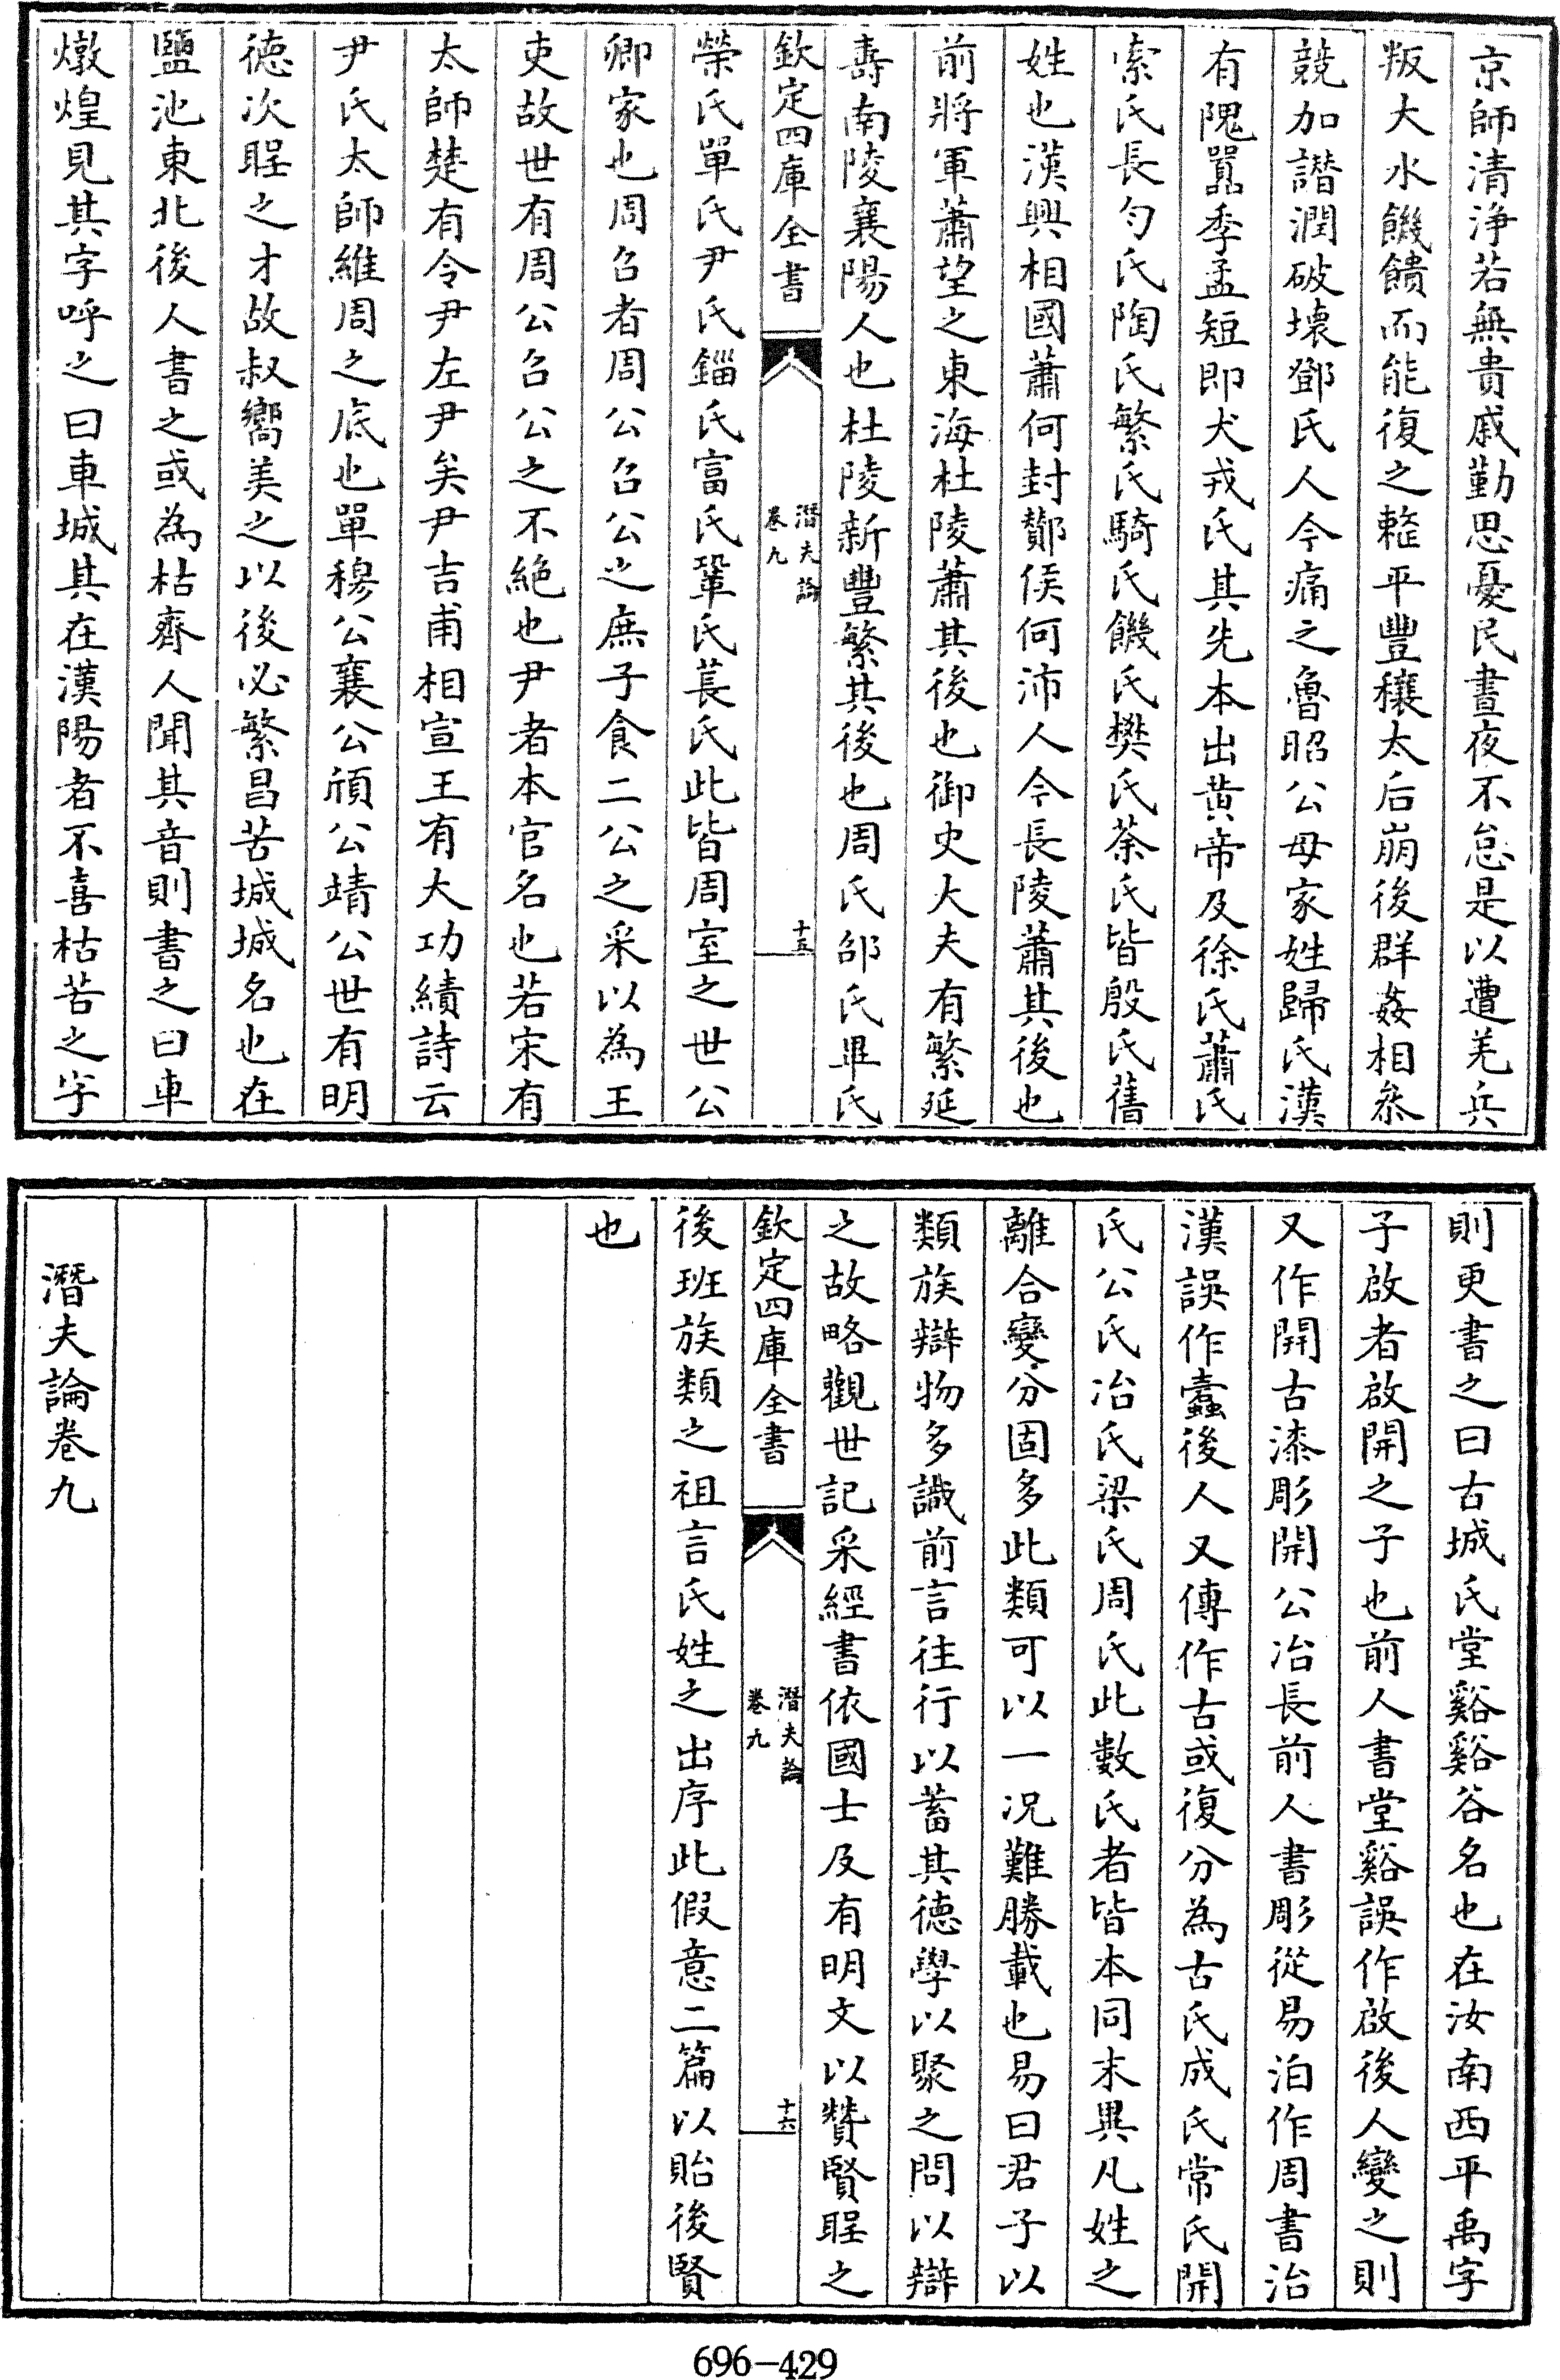 京師清淨若無貴戚勤思憂民晝夜不怠是以遭羌兵
叛大水饑饋而能復之整平豐穰太后崩後群姦相叅
競加譖潤破壞鄧氏人今痛之魯昭公母家姓歸氏漢
有隗囂季孟短即犬戎氏其先本出黄帝及徐氏蕭氏
索氏長勺氏陶氏繁氏騎氏饑氏樊氏荼氏皆殷氏舊
姓也漢興相國蕭何封酇侯何沛人今長陵蕭其後也
前將軍蕭望之東海杜陵蕭其後也御史大夫有繁延
夀南陵襄陽人也杜陵新豐繁其後也周氏邵氏畢氏
欽定四庫全書
潛夫論
卷九
十五
榮氏單氏尹氏鎦氏富氏鞏氏萇氏此皆周室之世公
卿家也周召者周公召公之庶子食二公之采以為王
吏故世有周公召公之不絶也尹者本官名也若宋有
太師楚有令尹左尹矣尹吉甫相宣王有大功績詩云
尹氏太師維周之底也單穆公襄公頎公靖公世有明
德次聖之才故叔嚮美之以後必繁昌苦城城名也在
鹽池東北後人書之或為枯齊人聞其音則書之曰車
燉煌見其字呼之曰車城其在漢陽者不喜枯苦之字
則更書之曰古城氏堂谿谿谷名也在汝南西平禹字
子啟者啟開之子也前人書堂谿誤作啟後人變之則
又作開古漆彫開公冶長前人書彫從易泊作周書治
漢誤作蠹後人又傳作古或復分為古氏成氏常氏開
氏公氏冶氏梁氏周氏此數氏者皆本同末異凡姓之
離合變分固多此類可以一况難勝載也易曰君子以
類族辯物多識前言往行以蓄其德學以聚之問以辯
之故略觀世記采經書依國士及有明文以贊賢聖之
欽定四庫全書
潛夫論
卷九
十六
後班族類之祖言氏姓之出序此假意二篇以貽後賢
也
潛夫論卷九
696-429